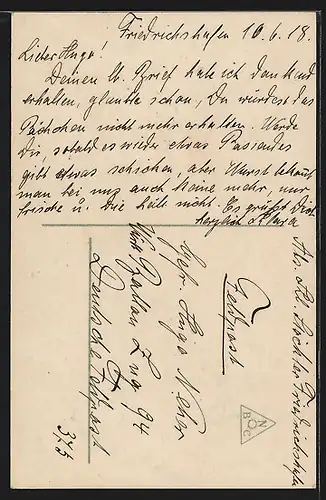 Friedrichshafen 10.6.18.
Lieber Hugo!
Deinen lb. Brief habe ich dankend
erhalten, glaubte schon, Du würdest das
Päckchen nicht mehr erhalten. Werde
Dir, sobald es wieder etwas Passendes
gibt etwas schicken, aber Wurst bekommt
man bei uns auch keine mehr, nur
frische u. die hält nicht. Es grüßt Dich
herzlich Klara
Abs. Kl. Friedrichshafen
Feldpost
Gefr. Hugo
Württ. Zug 94
Deutsche Feldpost
375
NBC